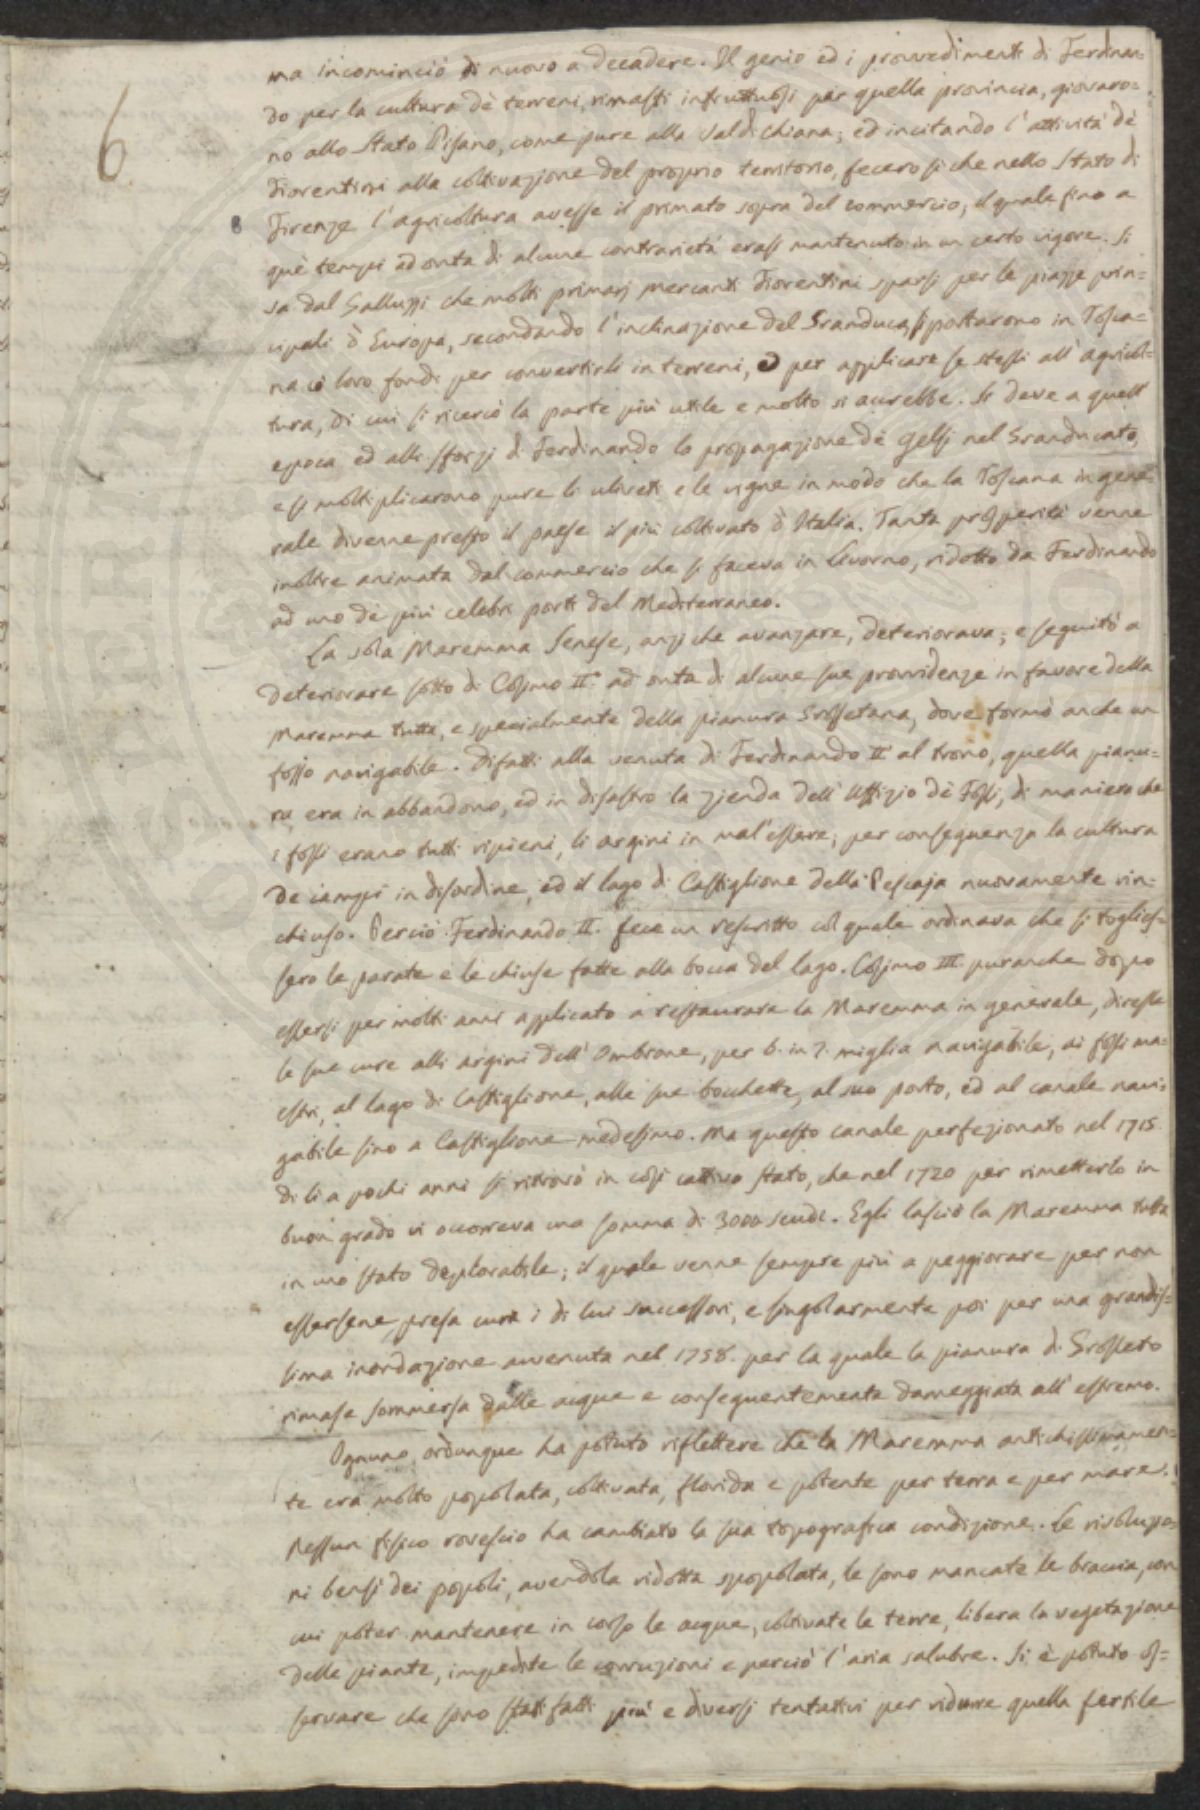 6
ma incominciò di nuovo a decadere. Il genio ed i provvedimenti di Ferdinan=
do per la cultura dè terreni, rimasti infruttuosi per quella provincia, giovaro=
no allo Stato Pisano, come pure alla Valdichiana; ed incitando l'attività dè
Fiorentini alla coltivazione del proprio territorio, fecero si che nello Stato di
8 Firenze l'agricoltura avesse il primato sopra del commercio, il quale fino a
què tempi ad onta di alcune contrarietà erasi mantenuto in un certo vigore. Si
sa dal Galluzzi che molti primarj mercanti Fiorentini sparsi per le piazze prin=
cipali d'Europa, secondando l'inclinazione del Granduca, si portarono in Tosca=
na cò loro fondi per convertirli in terreni, e per applicare se stessi all'agricol=
tura, di cui si ricercò la parte più utile e molto si accrebbe. Si deve a quell'
epoca ed alli sforzi di Ferdinando la propagazione dè gelsi nel Granducato,
e si moltiplicarono pure li uliveti e le vigne in modo che la Toscana in gene=
rale divenne presto il paese il più coltivato d'Italia. Tanta prosperità venne
inoltre animata dal commercio che si faceva in Livorno, ridotto da Ferdinando
ad uno dè più celebri porti del Mediterraneo.
La sola Maremma Senese, anzi che avanzare, deteriorava; e seguitò a
deteriorare sotto di Cosimo II. ad onta di alcune sue provvidenze in favore della
Maremma tutta, e specialmente della pianura Grossetana, dove formò anche un
fosso navigabile. Difatti alla venuta di Ferdinando II al trono, quella pianu=
ra era in abbandono, ed in disastro la zienda dell'Uffizio dè Fossi, di maniera che
i fossi erano tutti ripieni, li argini in mal'essere, per conseguenza la cultura
de campi in disordine, ed il lago di Castiglione della Pescaja nuovamente rin=
chiuso. Perciò Ferdinando II. fece un rescritto col quale ordinava che si toglies=
sero le parate e le chiuse fatte alla bocca del lago. Cosimo III. puranche dopo
essersi per molti anni applicato a restaurare la Maremma in generale, diresse
le sue cure alli argini dell'Ombrone, per 6. in 7. miglia navigabile, ai fossi ma=
estri, al lago di Castiglione, alle sue bocchette, al suo porto, ed al canale navi=
gabile sino a Castiglione medesimo. Ma questo canale perfezionato nel 1715.
di li a pochi anni si ritrovò in così cattivo stato, che nel 1720 per rimetterlo in
buon grado vi occorreva una somma di 3000 scudi. Egli lasciò la Maremma tutta
in uno stato deplorabile; il quale venne sempre più a peggiorare per non
essersene presa cura i di lui successori, e singolarmente poi per una grandis=
sima inondazione avvenuta nel 1758. per la quale la pianura di Grosseto
rimase sommersa dalle acque e conseguentemente danneggiata all'estremo.
Ognuno ordunque ha potuto riflettere che la Maremma antichissimamen=
te era molto popolata, coltivata, florida e potente per terra e per mare.
Nessun fisico rovescio ha cambiato la sua topografica condizione. Le rivoluzio=
ni bensì dei popoli, avendola ridotta spopolata, le sono mancate le braccia, con
cui poter mantenere in corso le acque, coltivate le terre, libera la vegetazione
delle piante, impedite le corruzioni e perciò l'aria salubre. Si è potuto os=
servare che sono stati fatti più e diversi tentativi per ridurre quella fertile